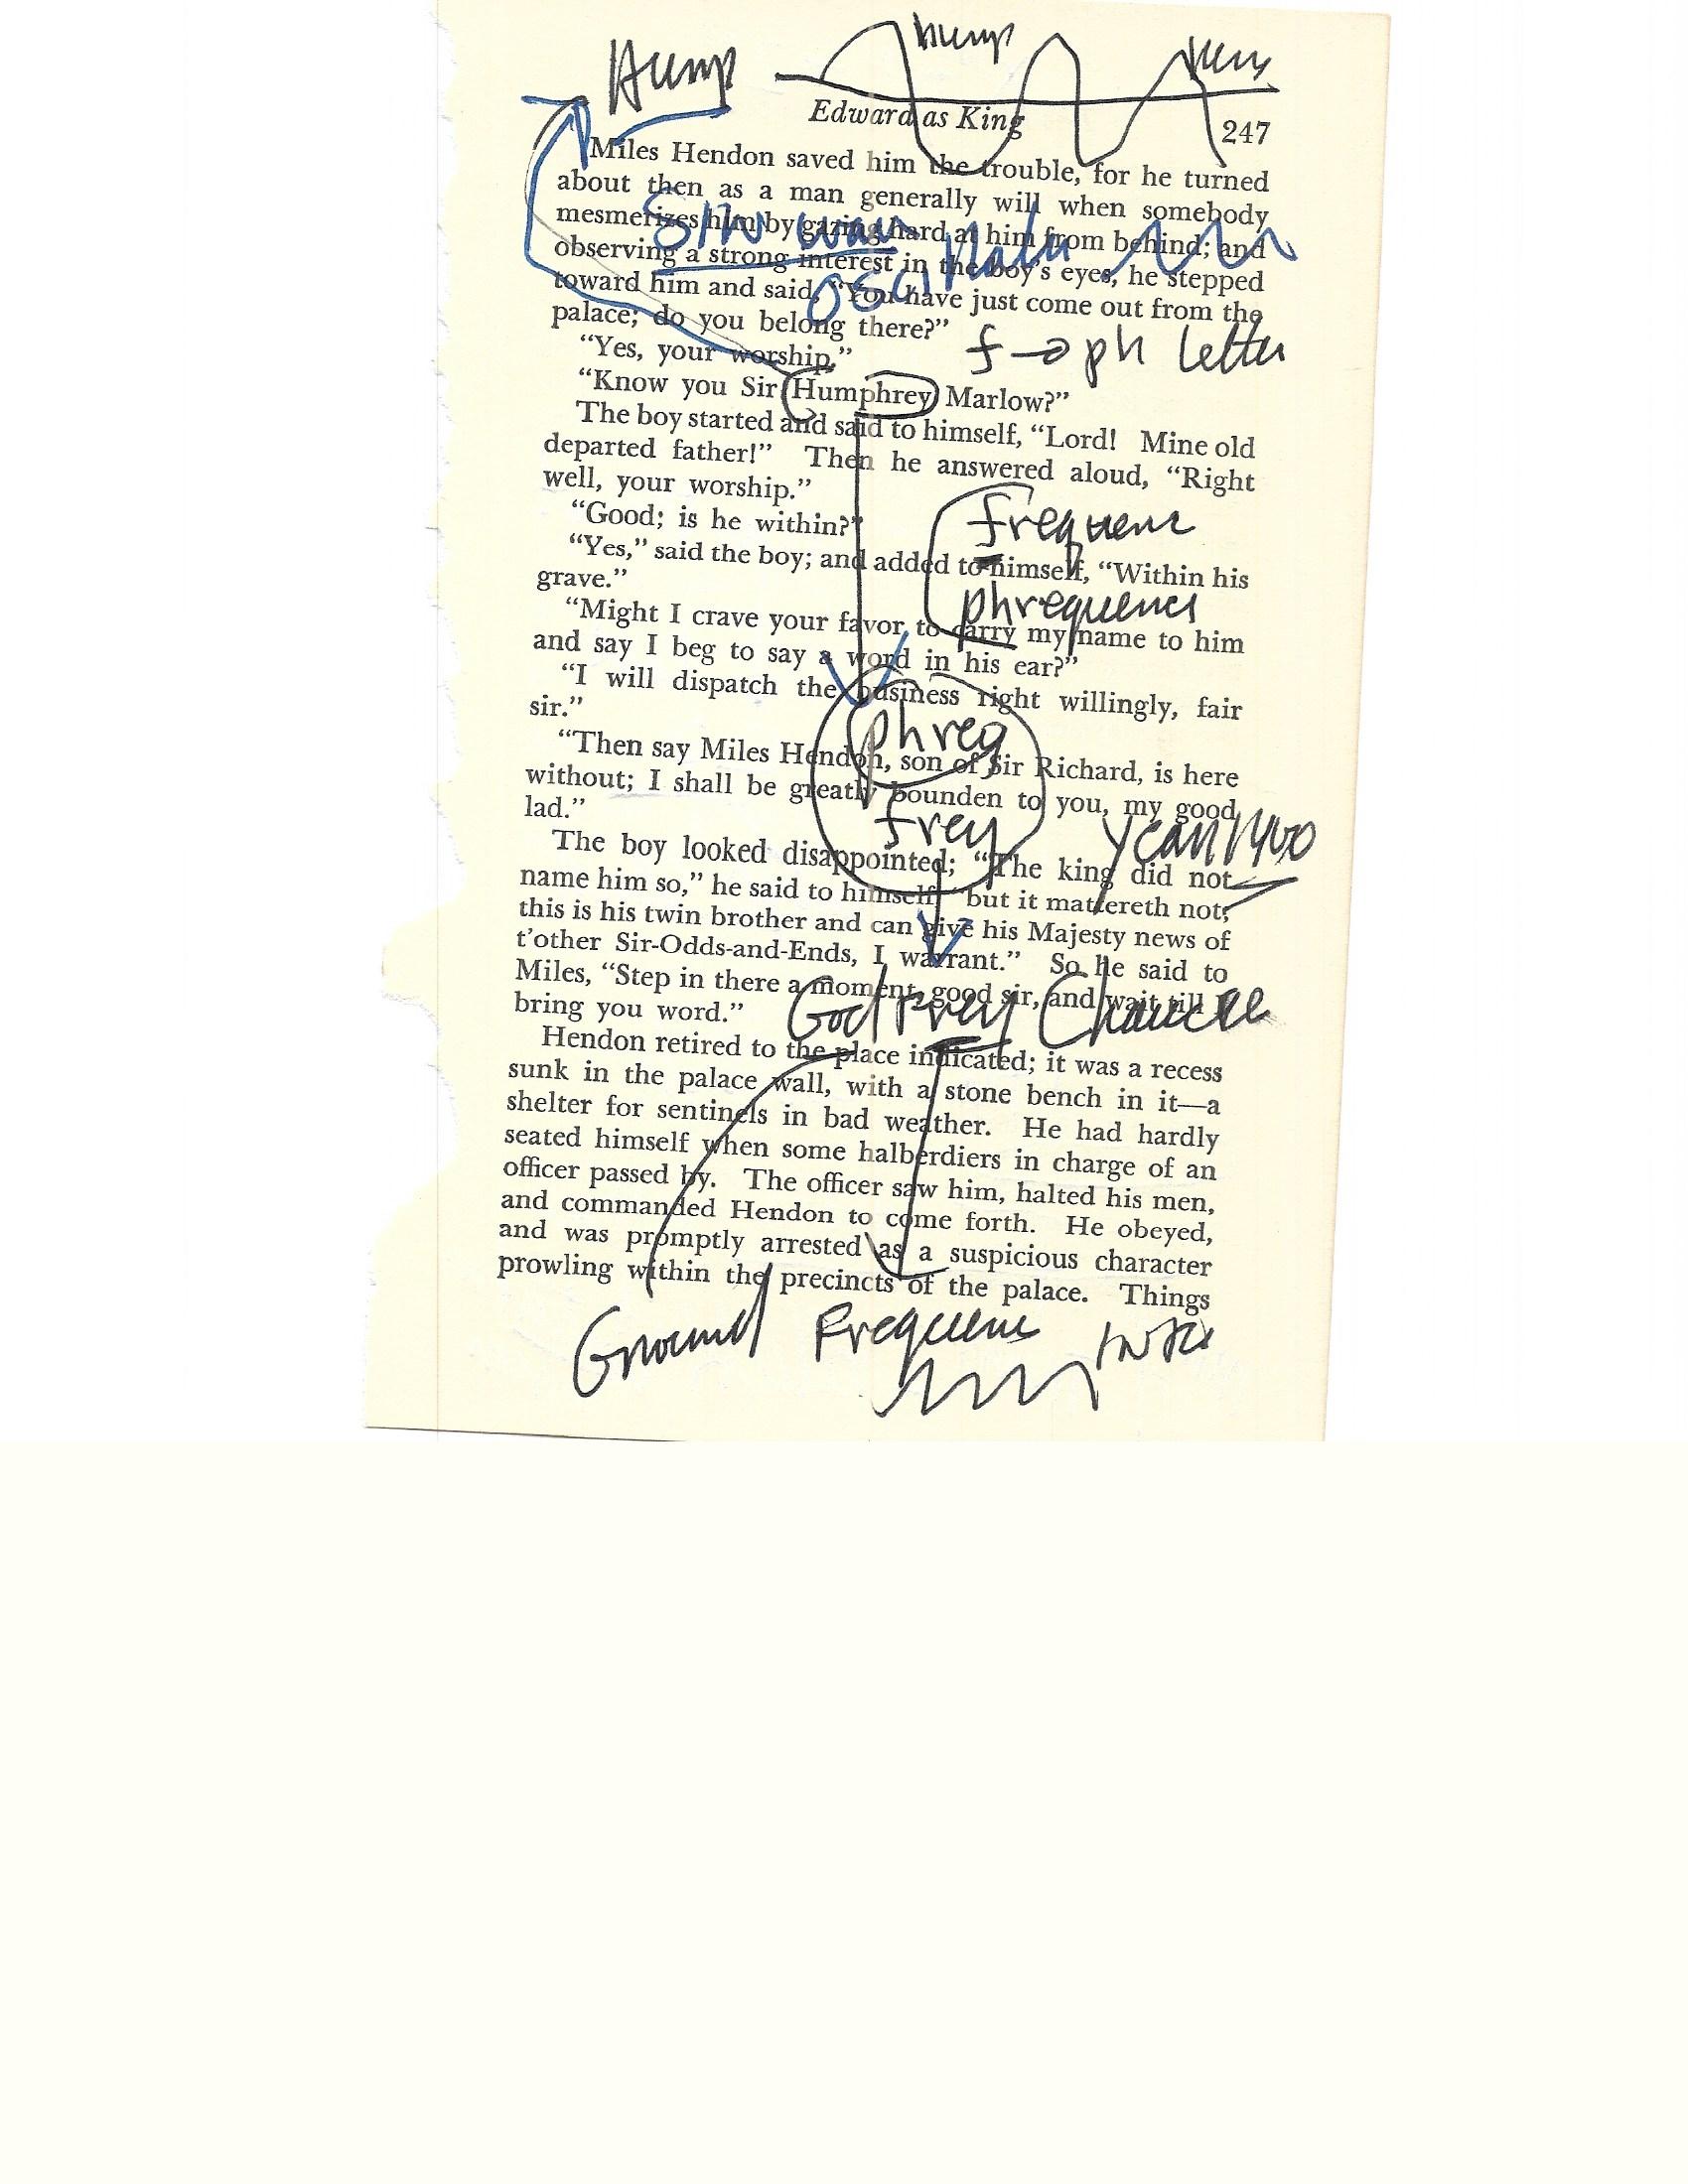 Hump hump hump
Edward as King 247
Miles Hendon saved him the trouble, for he turned
about then as a man generally will when somebody
mesmerizes him by gazing hard at him from behind; and
Sin wav
observing a strong interest in the boy's eyes, he stepped
toward him and said, "You have just come out from the
palace; do you belong there?"
f → ph letter
"Yes, your worship."
"Know you Sir Humphrey Marlow?"
The boy started and said to himself, "Lord! Mine old
departed father!" Then he answered aloud, "Right
well, your worship."
frequenc
"Good; is he within?"
"Yes," said the boy; and added to himself, "Within his
grave."
phrequenci
"Might I crave your favor to carry my name to him
and say I beg to say a word in his ear?"
"I will dispatch the business right willingly, fair
sir."
phreq
"Then say Miles Hendon, son of Sir Richard, is here
without; I shall be greatly bounden to you, my good
lad."
frey
The boy looked disappointed; "The king did not
name him so," he said to himself, "but it mattereth not;
this is his twin brother and can give his Majesty news of
t'other Sir-Odds-and-Ends, I warrant." So he said to
Miles, "Step in there a moment, good sir, and wait till I
bring you word."
God Frey
Hendon retired to the place indicated; it was a recess
sunk in the palace wall, with a stone bench in it—a
shelter for sentinels in bad weather. He had hardly
seated himself when some halberdiers in charge of an
officer passed by. The officer saw him, halted his men,
and commanded Hendon to come forth. He obeyed,
and was promptly arrested as a suspicious character
prowling within the precincts of the palace. Things
Ground Frequenc